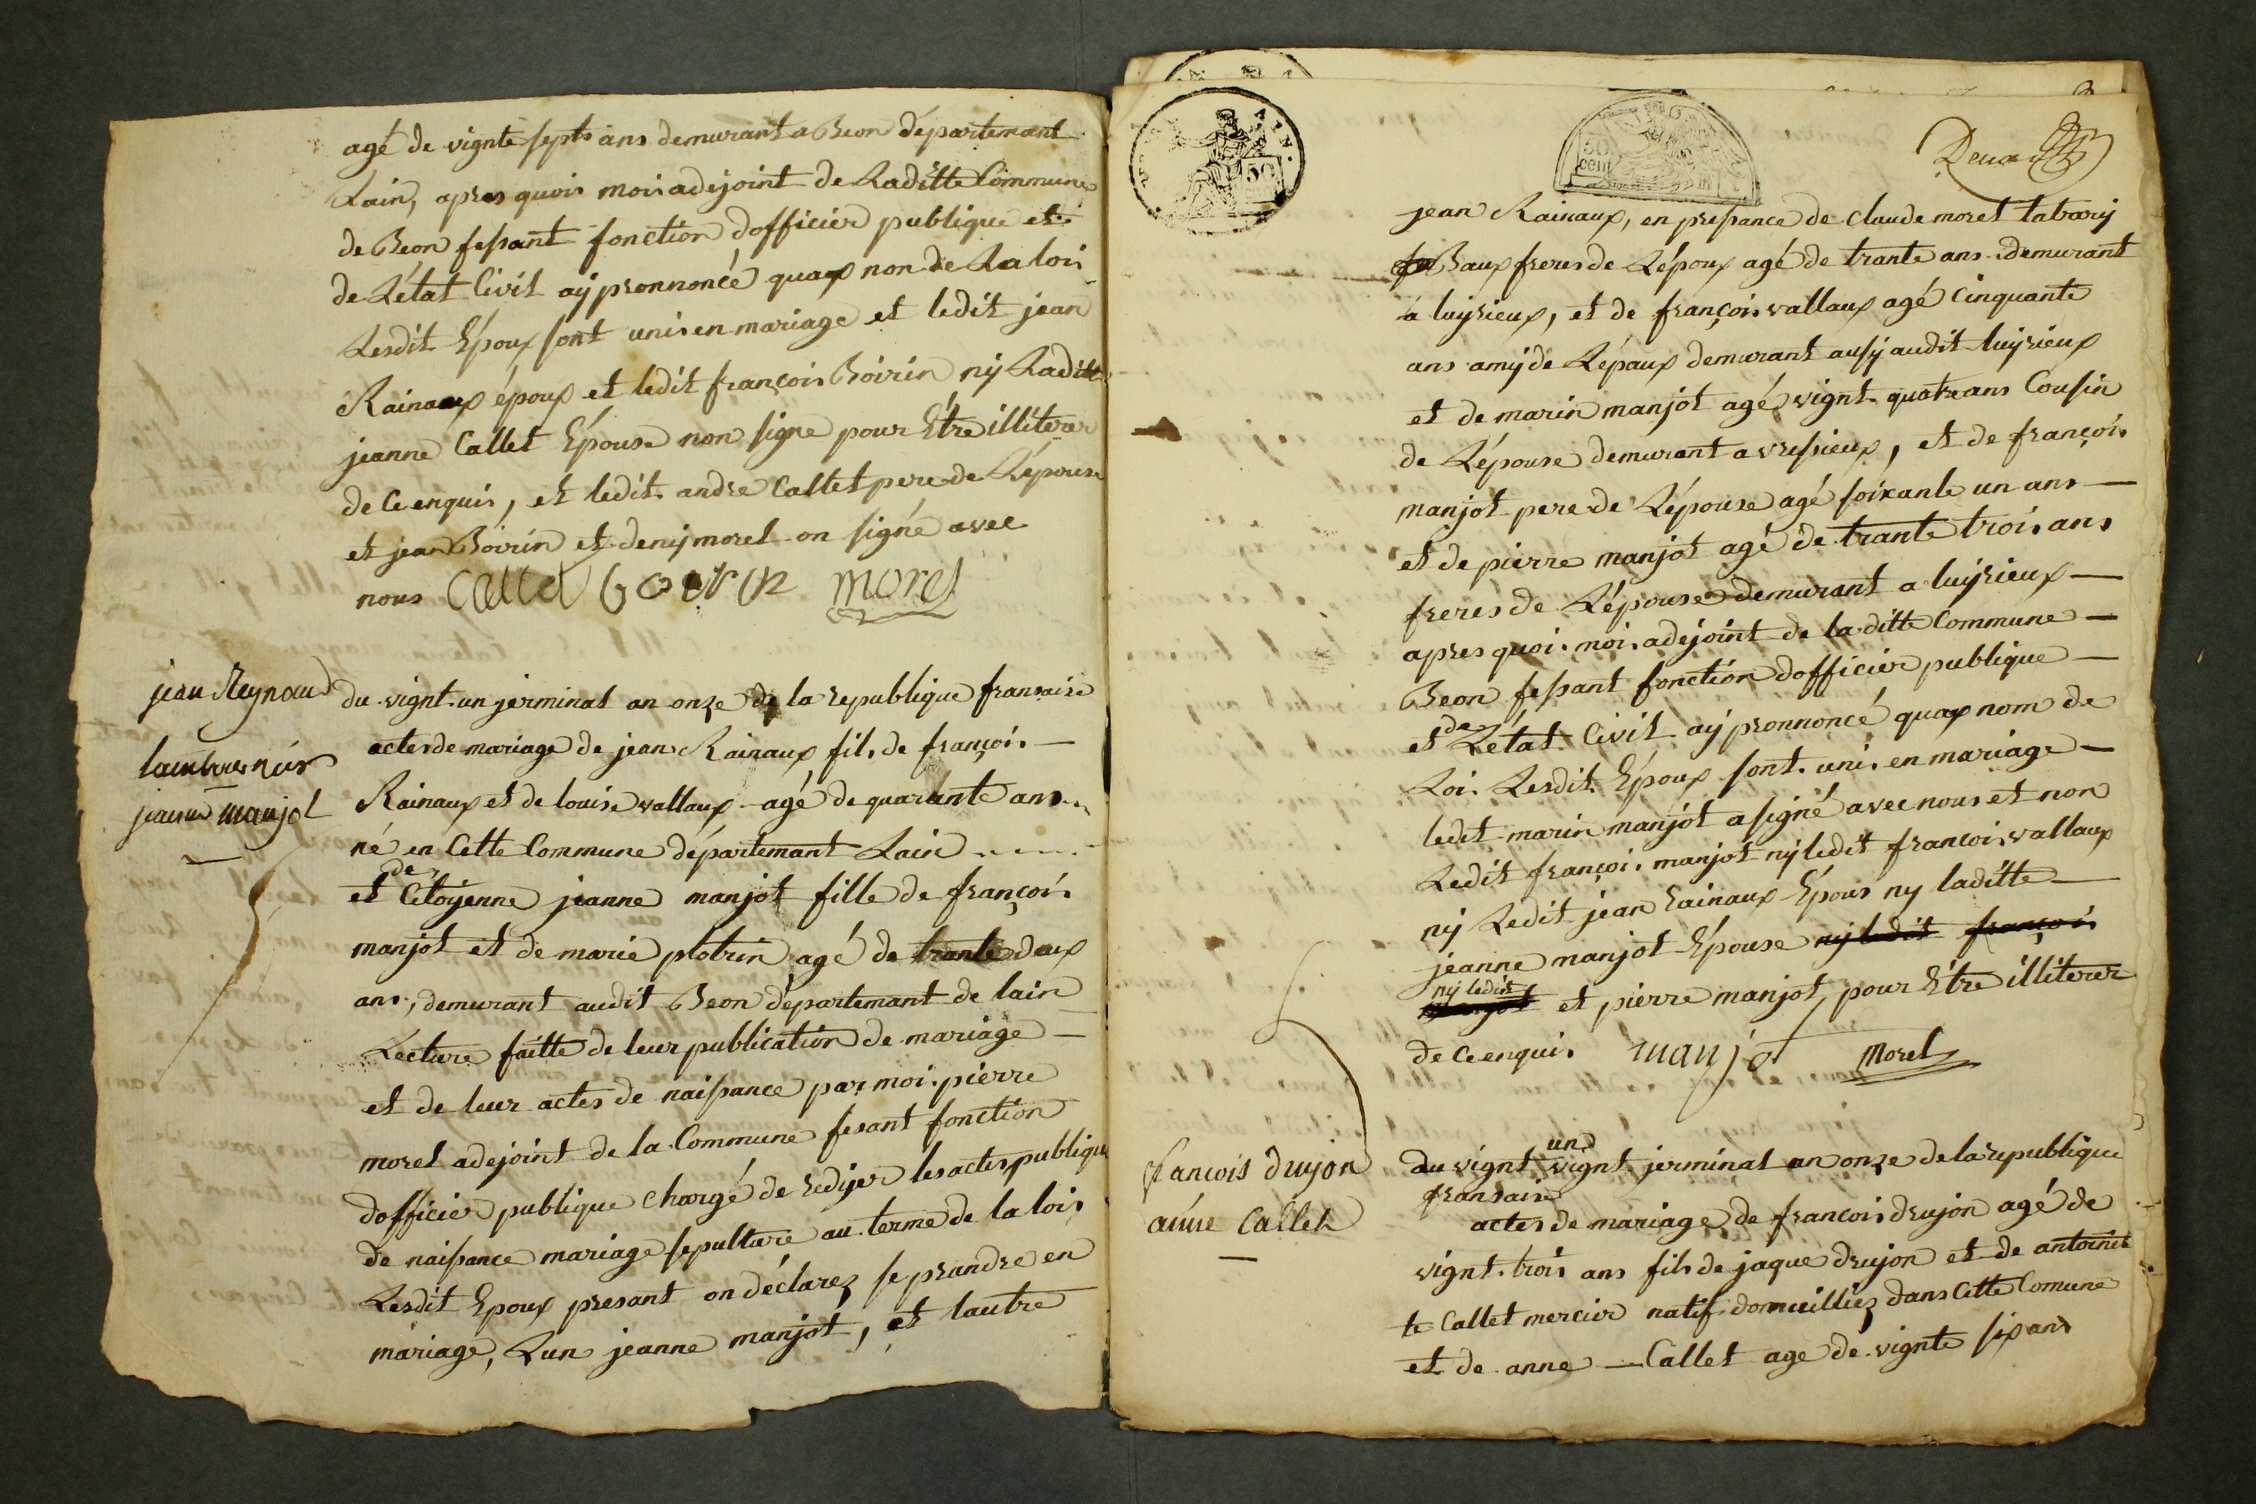 agé de vignte septs ans demurant a Beon département
Lain, apres quoi moi adejoint de Laditte Commune
de Beon fesant fonction dofficier publique et
de Létat Civil aÿ pronnoncé quax non de La loi
Lesdit Époux sont uni en mariage et ledit jean
Rainaux époux et ledit françois Boirin nÿ Laditte
jeanne Callet Épouse non signe pour Etre illiterer
de Ce enquis, et ledit andre Callet pere de Lépouse
et jean Boirin et denij morel on signé avec
nous Callet boirin morel
jean Reynaud
jeanne manjot
du vignt un jerminal an onze de la republique fransaise
actes de mariage de jean Rainaux fils de françois
Rainaux et de louise vallaux agé de quarante ans
né en Cette Commune départemant Lain
et de Citoyenne jeanne manjot fille de françois
manjot et de marie plotrin agé de trante deux
ans, demurant audit Beon départemant de lain
Lecture faitte de leur publication de mariage
et de leur actes de naissance par moi pierre
morel adejoint de la Commune fesant fonction
dofficier publique chargé de redijer les actes publique
de naissance mariage sepulture au terme de la loi
Lesdit Epoux presant on déclarez se prandre en
mariage, Lun jeanne manjot, et lautre
AIN.
50
50
cent
Deux
jean Rainaux, en pressance de claude moret tabarÿ
Baux freres de Lépoux agé de trante ans demurant
a luÿrieux, et de françois vallaux agé Cinquante
ans amÿ de Lépaux demurant ausÿ audit luÿrieux
et de marin manjot agé vignt quatre ans Cousin
de Lépouse demurant a vressieux, et de françois
manjot pere de Lépouse agé soixante un ans
et de pierre manjot agé de trante trois ans
freres de Lépouse demurant a luÿrieux
apres quoi moi adejoint de la ditte Commune
Beon fessant fonction dofficier publique
et de Létat Civil aÿ pronnoncé quax nom de
Loi Lesdit Époux sont uni en mariage
ledit marin manjot a signé avec nous et non
Ledit françois manjot nÿ ledit francois vallaux
nÿ Ledit jean rainaux Épous ny laditte
jeanne manjot Épouse nÿ ledit françois
manjot nÿ ledit et pierre manjot pour Etre illiterer
de Ce enquis manjot Morel
francois drujon
anne Callet
du vignt un vignt jerminal an onze de la republique
fransaise
actes de mariage de francois drujon agé de
vignt trois ans fils de jaque drujon et de antoinet
te Callet mercier natif domicilliez dans Cette Comune
et de anne Callet age de vignte six ans